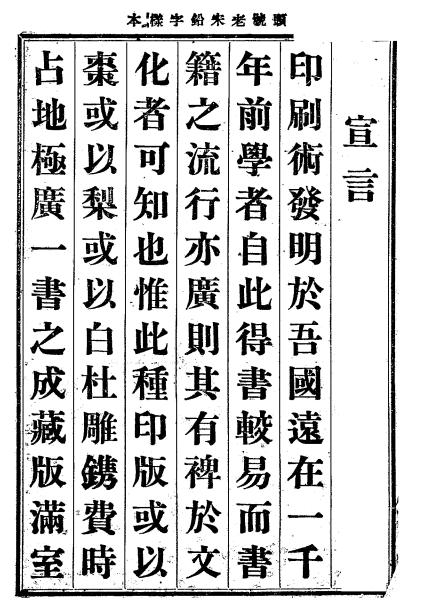 頭號老宋鉛字樣本
宣言
印刷術發明於吾國遠在一千
年前學者自此得書較易而書
籍之流行亦廣則其有裨於文
化者可知也惟此種印版或以
棗或以梨或以白杜雕鐫費時
占地極廣一書之成藏版滿室